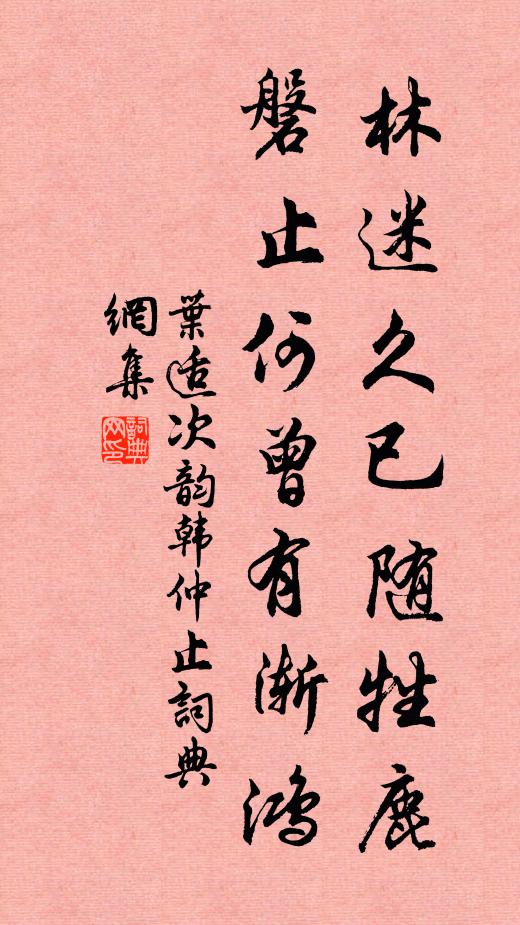 林迷久已随牲鹿
磐止何曾有渐鸿
葉适次韵韩仲止詞典
網集
詞典
网印